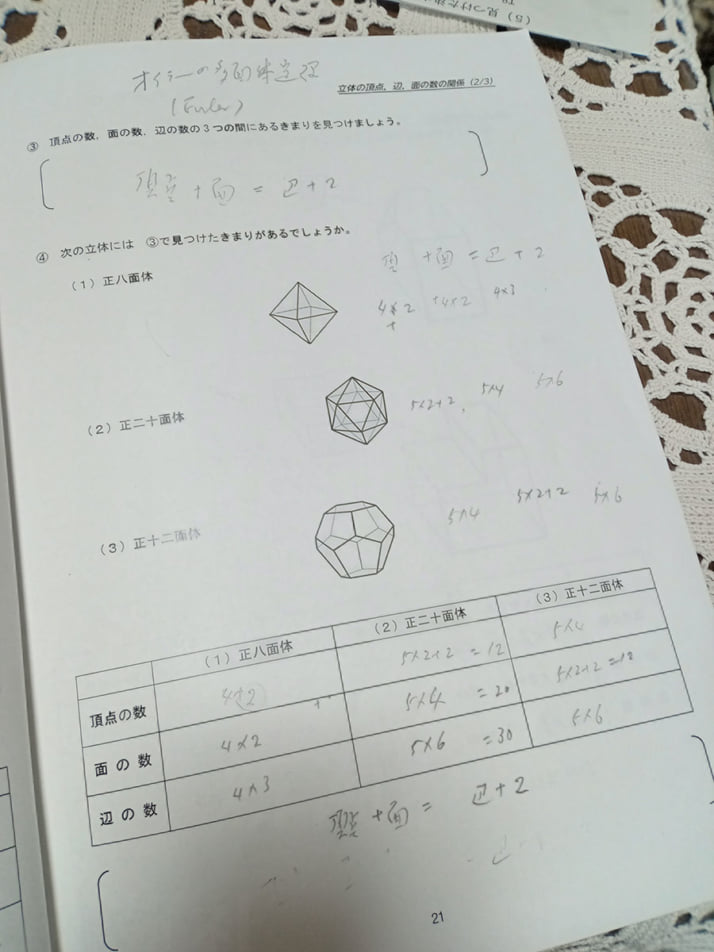 オイラーの多面体定理
(Euler)
立体の頂点，辺，面の数の関係（2/3）
③ 頂点の数，面の数，辺の数の３つの間にあるきまりを見つけましょう。
+面 = 辺+2
④ 次の立体には ③で見つけたきまりがあるでしょうか。
（1）正八面体
+面 = 辺+2
4×2 +4×2 4×3
+
（2）正二十面体
5×2+2, 5×4 5×6
（3）正十二面体
5×4 5×2+2 5×6
（1）正八面体 （2）正二十面体 （3）正十二面体
頂点の数 4+2 5×2+2 =12 5×4
面の数 4×2 5×4 =20 5×2+2 =12
辺の数 4×3 5×6 =30 5×6
+面 = 辺+2
21